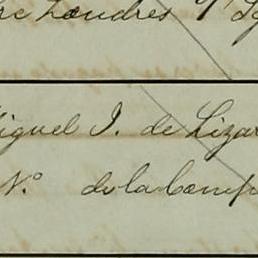 re Londres y
iguel I. de Lizar
N.º de la Comp